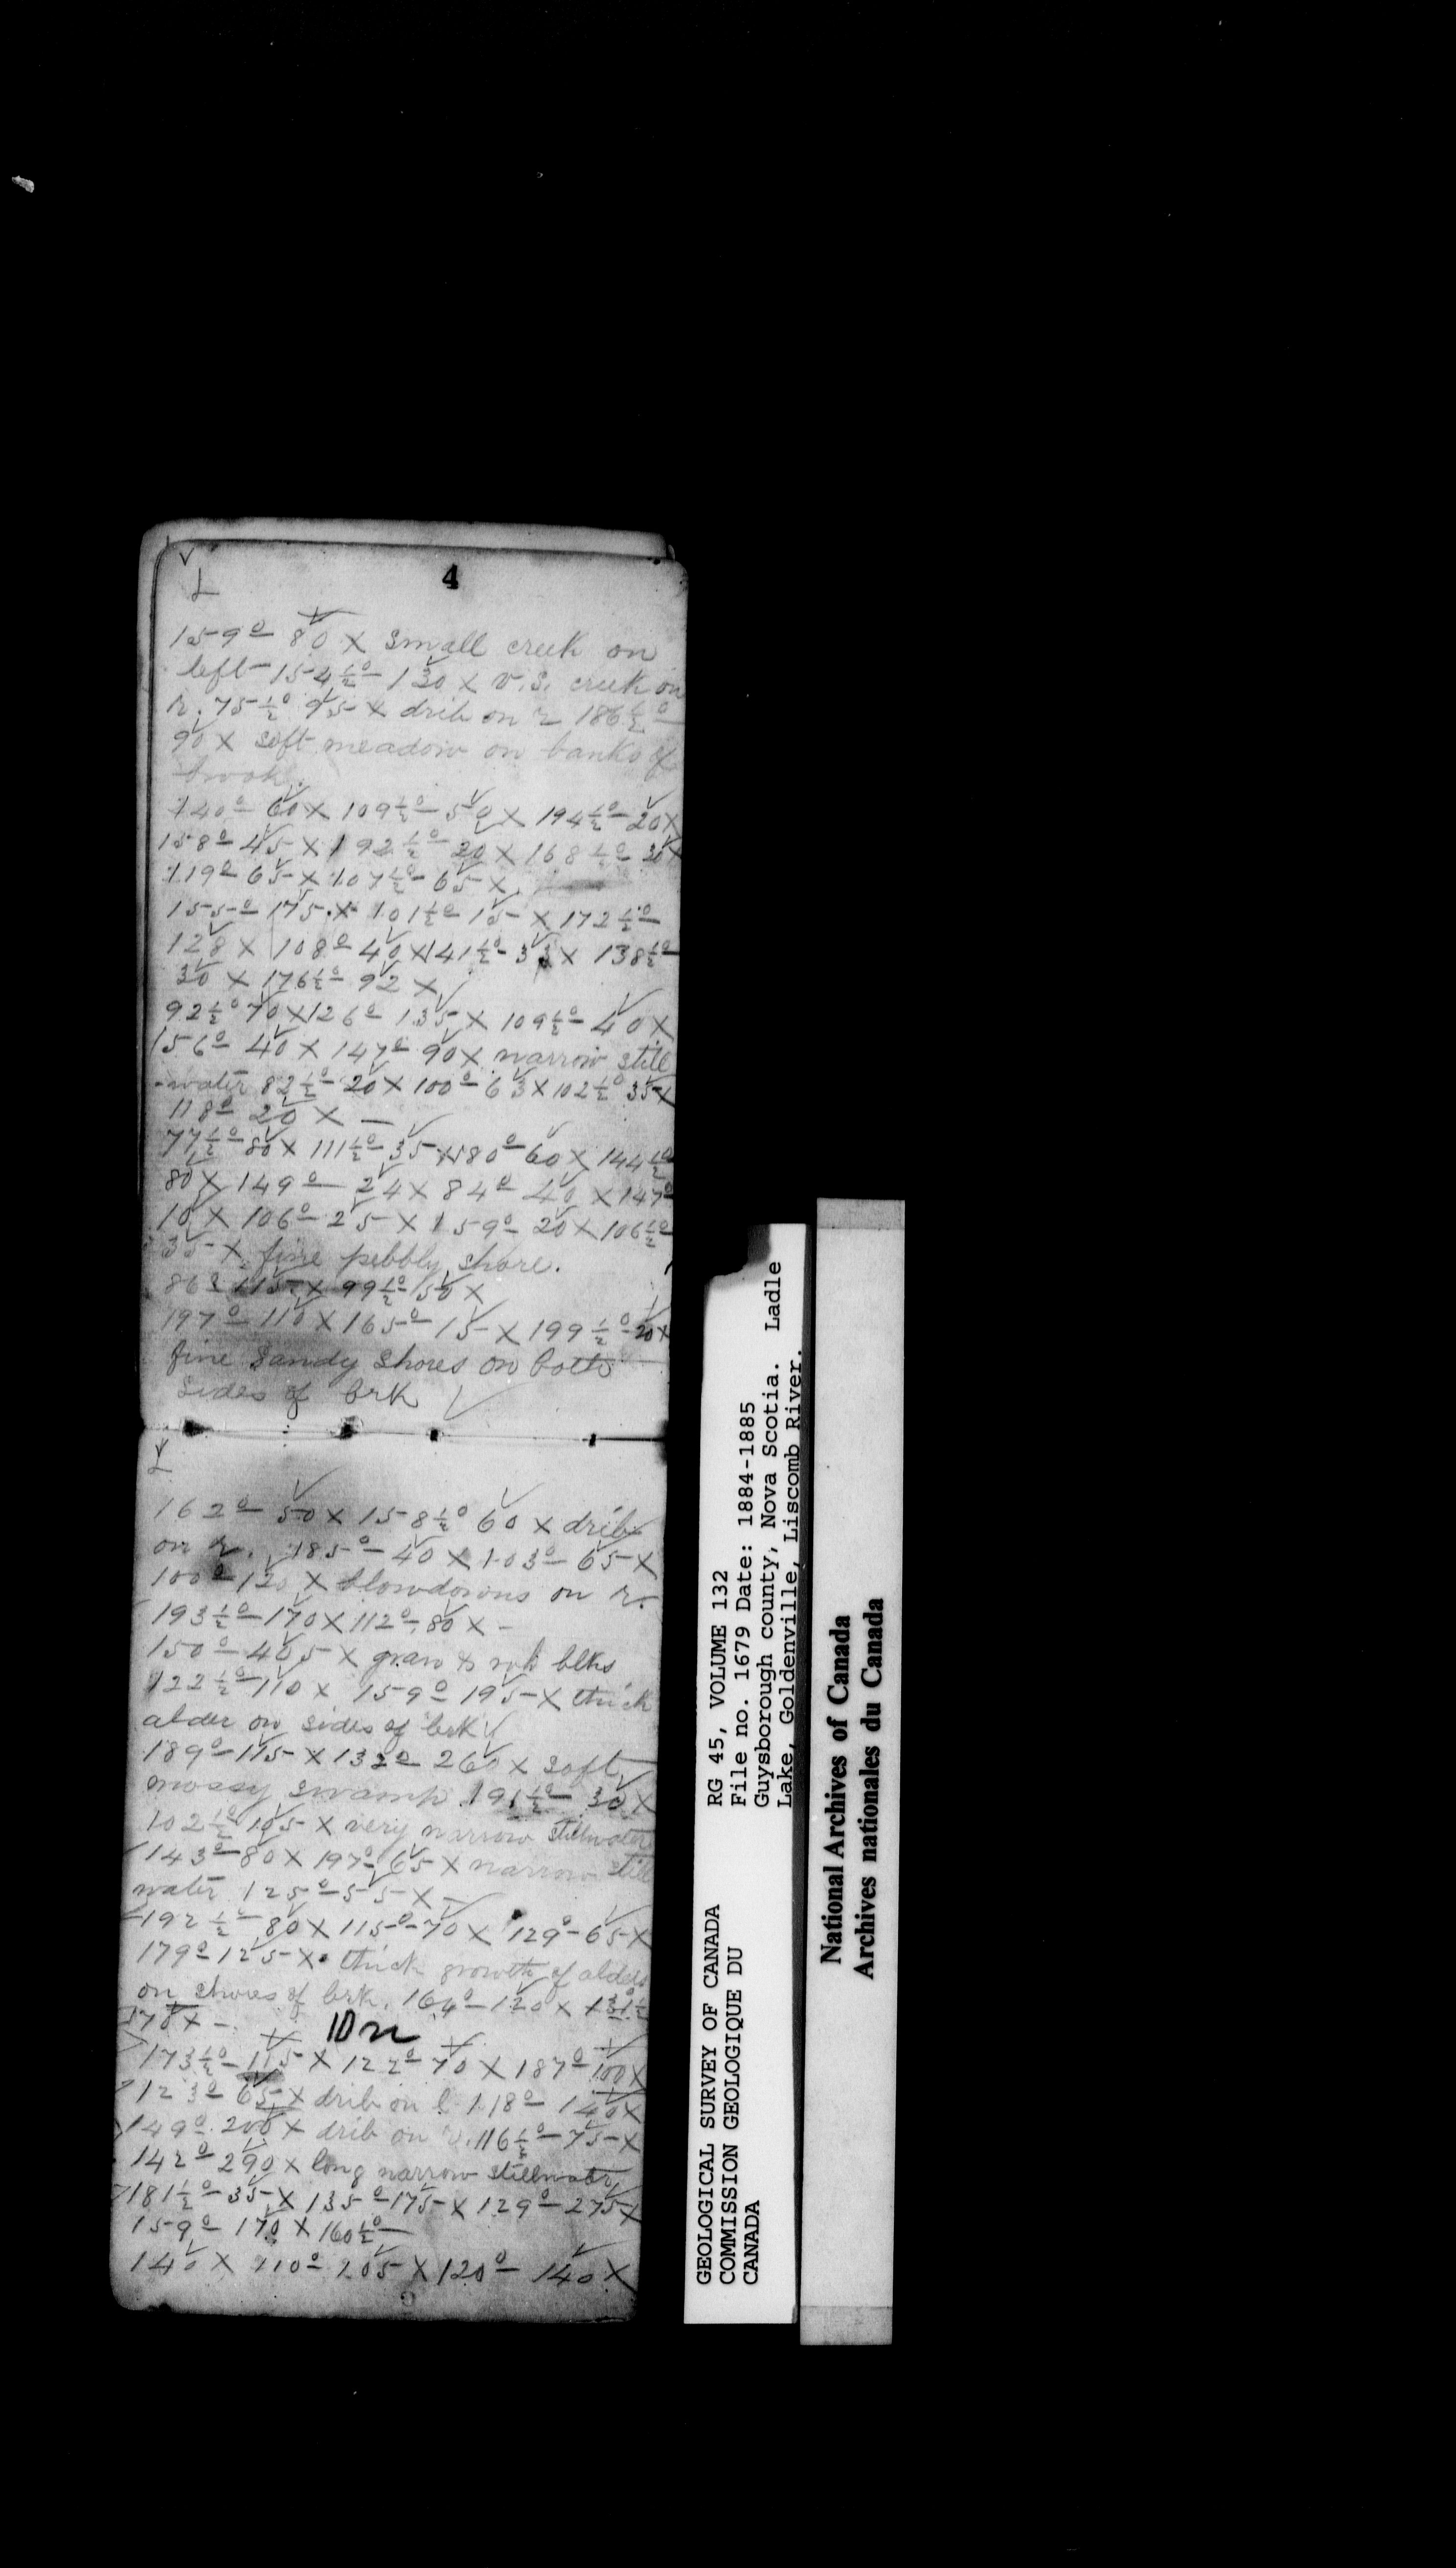 4
159° 80 X small creek on
left 154½° 130 X v.s. creek on
r. 75½° 95 X drib on r 186½°
90 X soft meadow on banks of
brook.
140° 60 X 109½° 50 X 194½° 20 X
158° 45 X 192½° 20 X 168½° 30 X
119° 65 X 107½° 65 X
155° 175 X 101½° 15 X 172½°
128 X 108° 40 X 141½° 33 X 138½°
30 X 176½° 92 X
92½° 70 X 126° 135 X 109½° 40 X
156° 40 X 147° 90 X narrow still
-water 82½° 20 X 100° 63 X 102½° 35 X
118° 20 X —
77½° 80 X 111½° 35 X 180° 60 X 144½°
80 X 149° 24 X 84° 40 X 147°
10 X 106° 25 X 159° 20 X 106½°
35 X fine pebbly shore.
115 X 99½° 150 X
197° 110 X 165° 15 X 199½° 20 X
fine sandy shores on both
sides of brk
162° 50 X 158½° 60 X drib
on r. 185° 40 X 103° 65 X
100° 120 X blowdowns on r.
193½° 170 X 112° 80 X —
150° 405 X blks
122½° 110 X 159° 195 X thick
alder on sides of brk
189° 115 X 132° 260 X soft
mossy swamp 191½° 30 X
102½° 105 X very narrow stillwater
143° 80 X 197° 65 X narrow still
water 125° 55 X —
192½° 80 X 115° 70 X 129° 65 X
179° 125 X thick growth of alders
on shores of brk. 164° 120 X 131½°
78 X —
173½° 115 X 122° 70 X 187° 100 X
123° 65 X drib on l 118° 140 X
149° 200 X drib on r. 116½° 75 X
142° 290 X long narrow stillwater
181½° 35 X 135° 175 X 129° 275 X
159° 170 X 160½°
140 X 110° 105 X 120° 140 X
GEOLOGICAL SURVEY OF CANADA
COMMISSION GEOLOGIQUE DU
CANADA
RG 45, VOLUME 132
File no. 1679 Date: 1884-1885
Guysborough county, Nova Scotia. Ladle
Lake, Goldenville, Liscomb River.
National Archives of Canada
Archives nationales du Canada